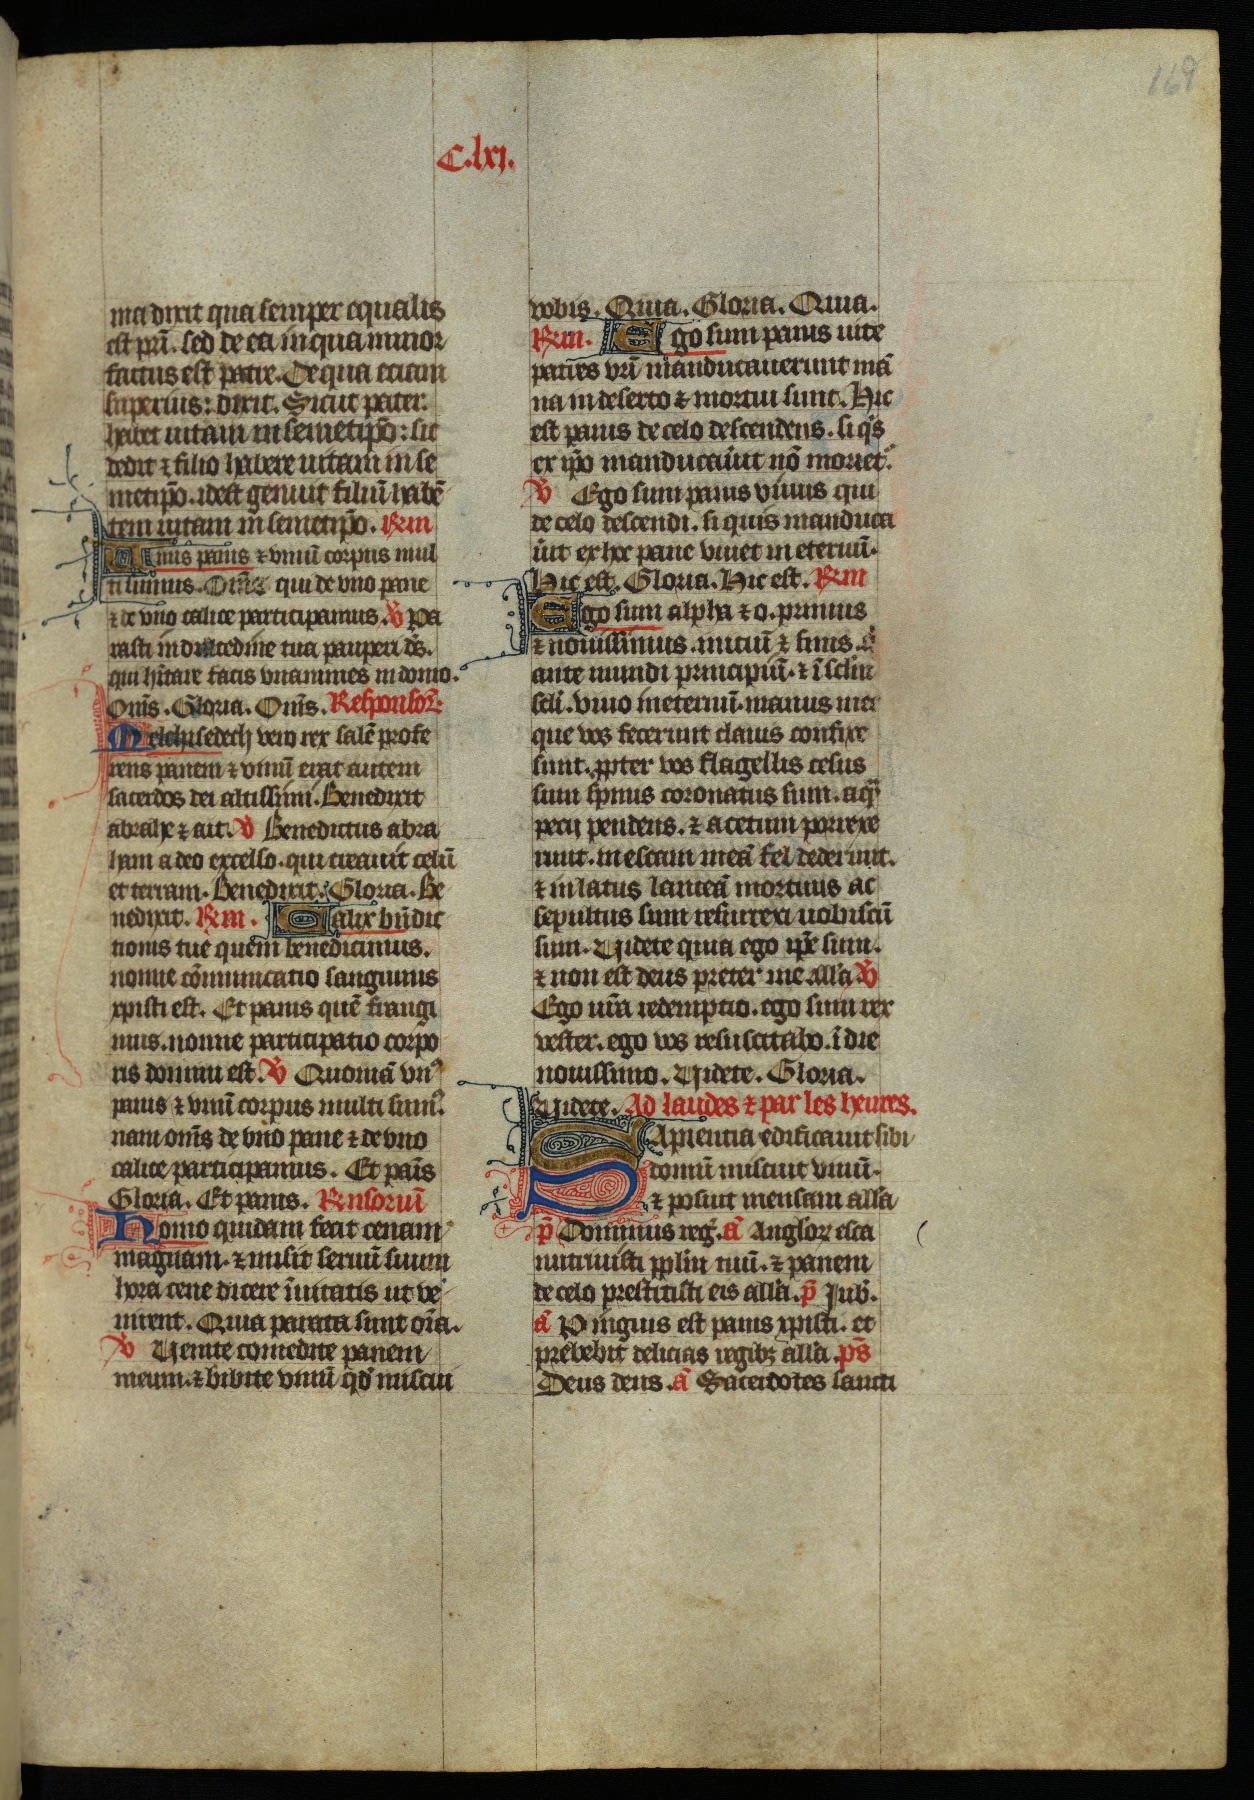 169
C.lxi.
ma dixit qua semper equalis
est pr̄i. sed de ea in qua minor
factus est patre. De qua etiam
superius: dixit. Sicut pater
habet uitam in semetip̄o: sic
dedit ⁊ filio habere uitam in se
metip̄o. idest genuit filiū habē
tem uitam in semetip̄o. R̄m
Unus panis ⁊ vnum corpus mul
ti sumus. Om̄s qui de vno pane
⁊ de vno calice participamus. V̄ Pa
rasti in dulcedine tua pauperi ds̄.
qui h̄itare facis vnanimes in domo.
Om̄s. Gloria. Om̄s. Responsor̄.
Melchisedech vero rex salē profe
rens panem ⁊ vinū erat autem
sacerdos dei altissimi. Benedixit
abrahe ⁊ ait. V̄ Benedictus abra
ham a deo excelso. qui creauit celū
et terram. Benedixit. Gloria. Be
nedixit. R̄m. Calix bn̄dic
tionis tue quem benedicimus.
nonne cōmunicatio sanguinis
xp̄isti est. Et panis quē frangi
mus. nonne participatio corpo
ris domini est. V̄ Quoniā vnꝰ
panis ⁊ vnū corpus multi sumꝰ.
nam om̄s de vno pane ⁊ de vno
calice participamus. Et pan̄s
Gloria. Et panis. R̄nsoriū
Homo quidam fecit cenam
magnam. ⁊ misit seruū suum
hora cene dicere īuitatis ut ve
nirent. Quia parata sunt oīa.
V̄ Uenite comedite panem
meum. ⁊ bibite vinū qd̄ miscui
vobis. Quia. Gloria. Quia.
R̄m. Ego sum panis uite
patres vr̄i manducauerunt mā
na in deserto ⁊ mortui sunt. Hic
est panis de celo descendens. si q̄s
ex ip̄o manducau̇it nō morietᷣ.
V̄ Ego sum panis viuus qui
de celo descendi. si quis manduca
u̇it ex hoc pane viuet in eternū.
Hic est. Gloria. Hic est. R̄m
Ego sum alpha ⁊ o. primus
⁊ nouissimus. inicuī ⁊ finis. q̄
ante mundi principiū. ⁊ ī sclm̄
scl̄i. viuo in eternū. manus mee
que vos fecerunt clauis confixe
sunt. ꝓpter vos flagellis cesus
sum spinis coronatus sum. aquā
pecij pendens. ⁊ acetum porrexe
runt. in escam meā fel dederunt.
⁊ in latus lanceā mortuus ac
sepultus sum resurrexi uobiscū
sum. Uidete quia ego ip̄e sum.
⁊ non est deus preter me all̄a V̄
Ego ur̄a redemptio. ego sum rex
vester. ego vos resuscitabo. ī die
nouissimo. Uidete. Gloria.
Uidete. Ad laudes ⁊ par les heures.
SApientia edificauit sibi
domū miscuit vinū.
⁊ posuit mensam all̄a
p̄ Dominus reḡ. ā Angloꝝ esca
nutriuisti ppl̄m tuū. ⁊ panem
de celo prestitisti eis all̄a. p̄ Jub̄.
ā Pinguis est panis xp̄isti. et
prebebit delicias regibꝫ all̄a. ps̄
Deus deus. ā Sacerdotes sancti